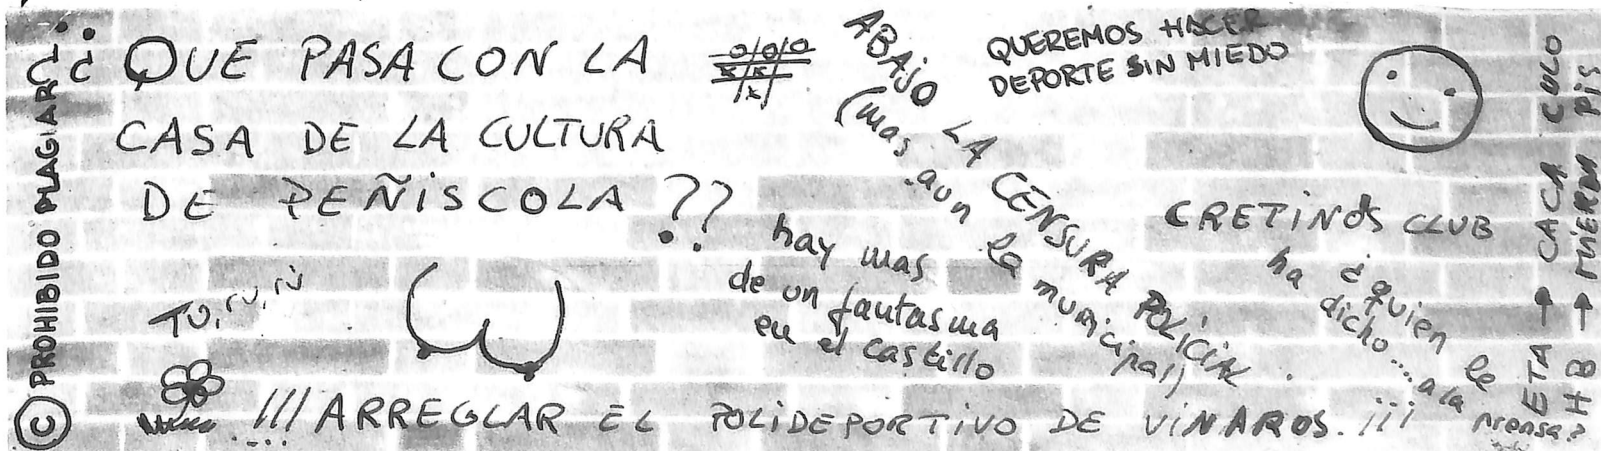 © PROHIBIDO PLAGIAR
¿¿ QUE PASA CON LA
CASA DE LA CULTURA
DE PEÑISCOLA ??
o/o/o
x/x/
/x/
ABAJO LA CENSURA POLICIAL
(mas aun la municipal)
QUEREMOS HACER
DEPORTE SIN MIEDO
CRETINOS CLUB
hay mas
de un fantasma
en el castillo
¿quien le
ha dicho.... a la
prensa?
TU, rú, rú
!!! ARREGLAR EL POLIDEPORTIVO DE VINAROS. ¡¡¡
ETA → CACA CULO
HB → MIERDA PIS